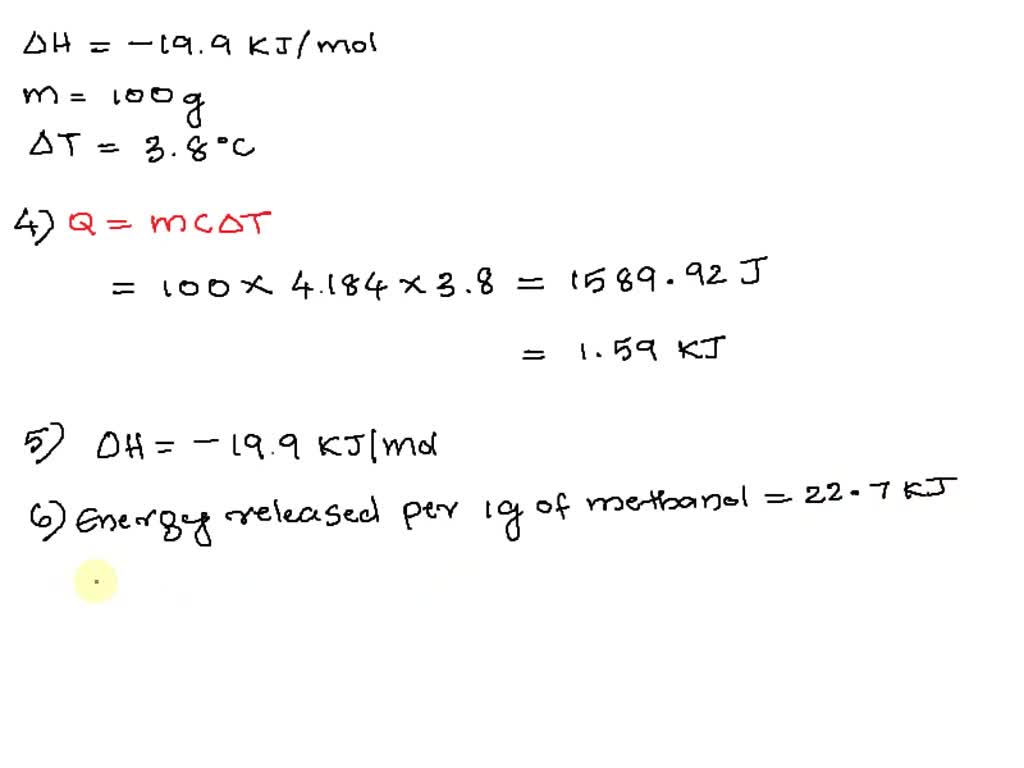 ΔH = -19.9 KJ/mol
m = 100g
ΔT = 3.8°C
4) Q = mCΔT
= 100 × 4.184 × 3.8 = 1589.92 J
= 1.59 KJ
5) ΔH = -19.9 KJ/mol
6) Energy released per 1g of methanol = 22.7 KJ